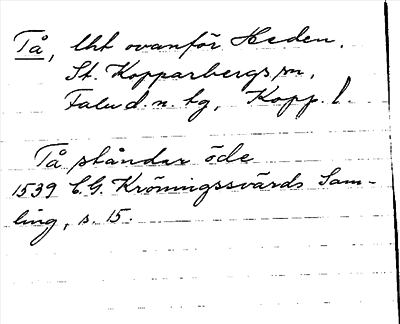 Tå, lht ovanför Heden,
St. Kopparbergs sn,
Falu d. n. tg, Kopp. l.
Tå ståndar öde
1539 C.G. Kröningssvärds Sam-
ling, s. 15.